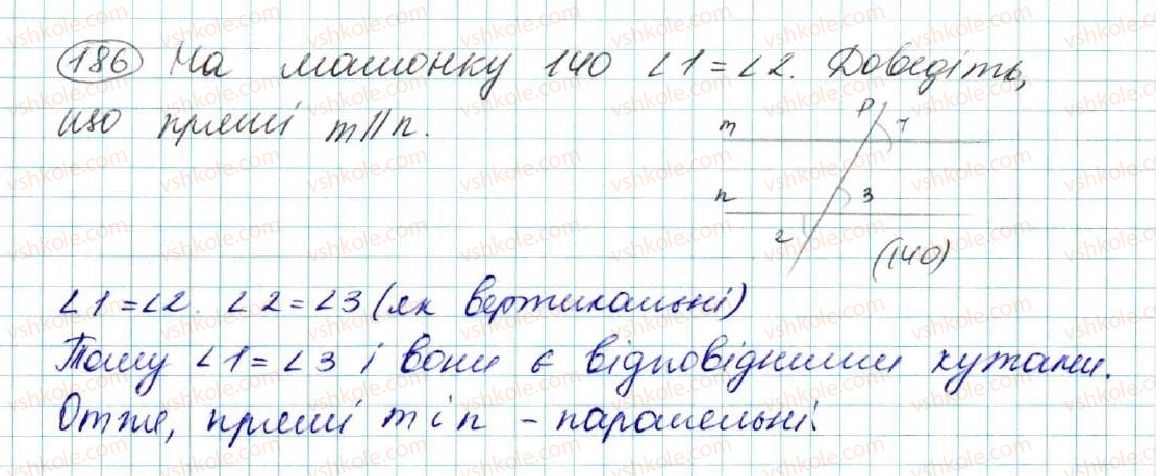 186 На малюнку 140 ∠1=∠2. Доведіть,
що прямі m∥n.
p 1
m
n 3
2
(140)
∠1=∠2. ∠2=∠3 (як вертикальні)
Тому ∠1=∠3 і вони є відповідними кутами.
Отже, прямі m і n - паралельні.
vshkole.com